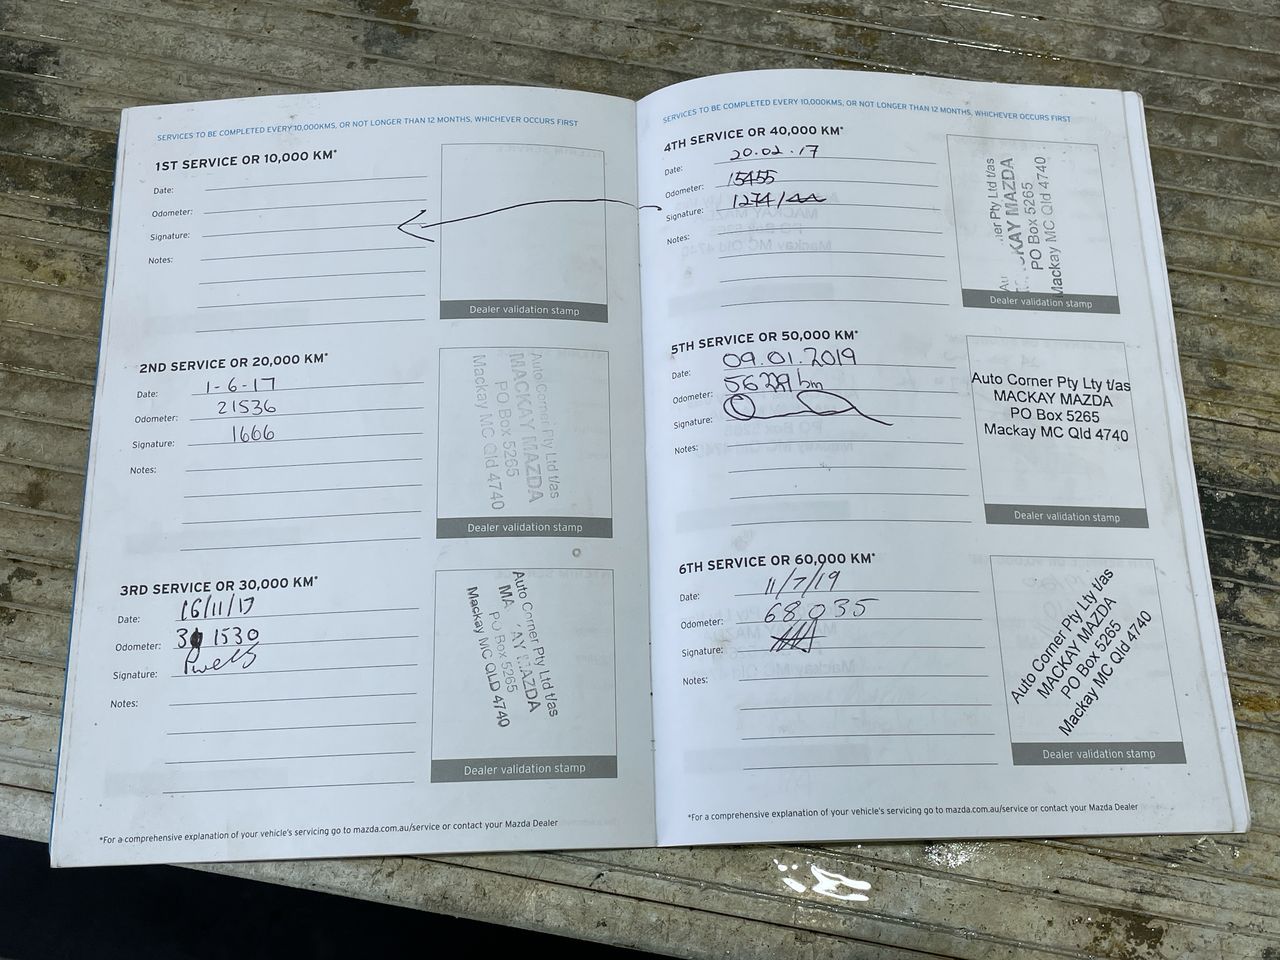 SERVICES TO BE COMPLETED EVERY 10,000KMS, OR NOT LONGER THAN 12 MONTHS, WHICHEVER OCCURS FIRST
1ST SERVICE OR 10,000 KM*
Date:
Odometer:
Signature:
Notes:
Dealer validation stamp
2ND SERVICE OR 20,000 KM*
Date: 1-6-17
Odometer: 21536
Signature: 1666
Notes:
Auto Corner Pty Ltd t/as
MACKAY MAZDA
PO Box 5265
Mackay MC Qld 4740
Dealer validation stamp
3RD SERVICE OR 30,000 KM*
Date: 16/11/17
Odometer: 3 1530
Signature:
Notes:
Auto Corner Pty Ltd t/as
MA AY MAZDA
PO Box 5265
Mackay MC QLD 4740
Dealer validation stamp
*For a comprehensive explanation of your vehicle's servicing go to mazda.com.au/service or contact your Mazda Dealer
SERVICES TO BE COMPLETED EVERY 10,000KMS, OR NOT LONGER THAN 12 MONTHS, WHICHEVER OCCURS FIRST
4TH SERVICE OR 40,000 KM*
Date: 20.02.17
Odometer: 15455
Signature: 1274
Notes:
ner Pty Ltd t/as
KAY MAZDA
PO Box 5265
Mackay MC Qld 4740
Dealer validation stamp
5TH SERVICE OR 50,000 KM*
Date: 09.01.2019
Odometer:
Signature:
Notes:
Auto Corner Pty Lty t/as
MACKAY MAZDA
PO Box 5265
Mackay MC Qld 4740
Dealer validation stamp
6TH SERVICE OR 60,000 KM*
Date: 11/7/19
Odometer: 68,035
Signature:
Notes:
Auto Corner Pty Ltd t/as
MACKAY MAZDA
PO Box 5265
Mackay MC Qld 4740
Dealer validation stamp
*For a comprehensive explanation of your vehicle's servicing go to mazda.com.au/service or contact your Mazda Dealer